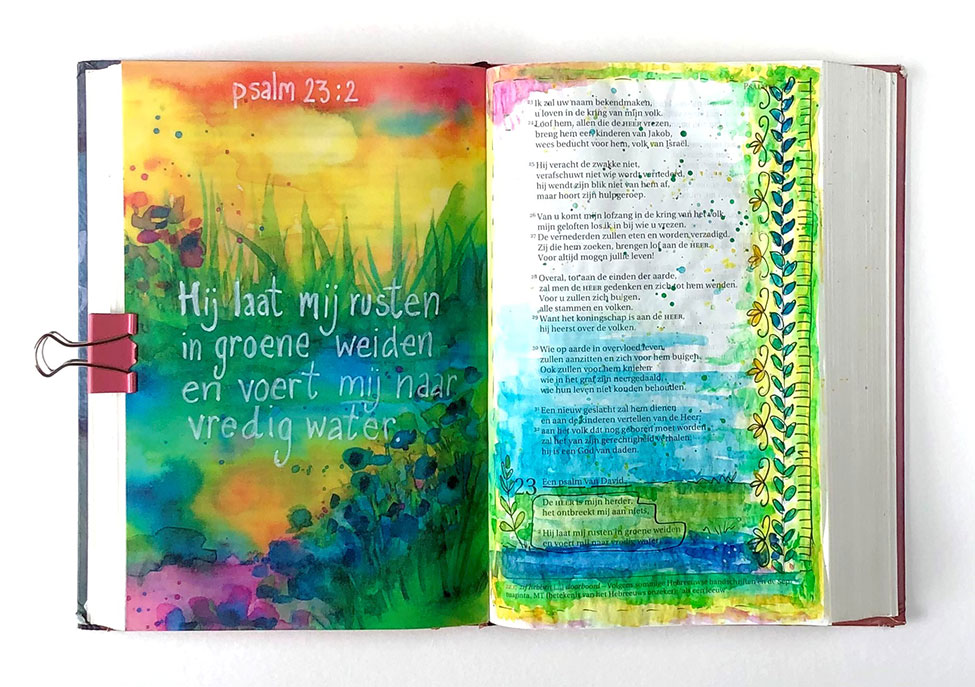 psalm 23:2
Hij laat mij rusten
in groene weiden
en voert mij naar
vredig water
23 Ik zal uw naam bekendmaken,
u loven in de kring van mijn volk.
24 Loof hem, allen die de HEER vrezen,
breng hem eer, kinderen van Jakob,
wees beducht voor hem, volk van Israël.
25 Hij veracht de zwakke niet,
verafschuwt niet wie wordt vernederd,
hij wendt zijn blik niet van hem af,
maar hoort zijn hulpgeroep.
26 Van u komt mijn lofzang in de kring van het volk,
mijn geloften los ik in bij wie u vrezen.
27 De vernederden zullen eten en worden verzadigd.
Zij die hem zoeken, brengen lof aan de HEER.
Voor altijd mogen jullie leven!
28 Overal, tot aan de einden der aarde,
zal men de HEER gedenken en zich tot hem wenden.
Voor u zullen zich buigen
alle stammen en volken.
29 Want het koningschap is aan de HEER,
hij heerst over de volken.
30 Wie op aarde in overvloed leven,
zullen aanzitten en zich voor hem buigen.
Ook zullen voor hem knielen
wie in het graf zijn neergedaald,
wie hun leven niet konden behouden.
31 Een nieuw geslacht zal hem dienen
en aan de kinderen vertellen van de Heer;
32 aan het volk dat nog geboren moet worden
zal het van zijn gerechtigheid verhalen:
hij is een God van daden.
23 Een psalm van David.
De HEER is mijn herder,
het ontbreekt mij aan niets.
2 Hij laat mij rusten in groene weiden
en voert mij naar vredig water,
Volgens sommige Hebreeuwse handschriften en de Sept
uaginta. MT (betekenis van het Hebreeuws onzeker): 'als een leeuw'.